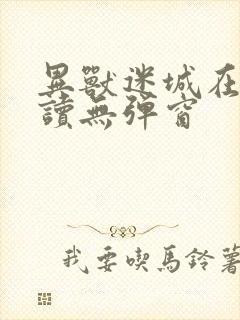 異獸迷城在
讀無彈窗
我要喫馬鈴薯